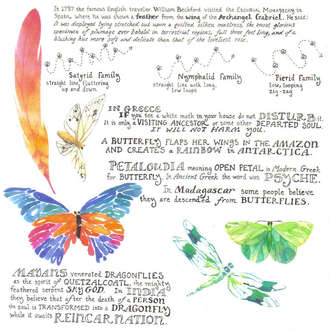 In 1787 the famous English traveler William Beckford visited the Escurial Monastery in
Spain, where he was shown a feather from the wing of the Archangel Gabriel. He said:
It was displayed lying stretched out upon a quilted silken mattress, the most glorious
specimen of plumage ever beheld in terrestrial regions, full three feet long, and of a
blushing hue more soft and delicate than that of the loveliest rose.
Satyrid Family
straight line, fluttering
up and down
Nymphalid Family
straight line with long,
low loops
Pierid Family
low, looping
zig-zag
IN GREECE
IF you see a white moth in your house do not DISTURB it.
It is only a VISITING ANCESTOR or some other DEPARTED SOUL.
IT WILL NOT HARM YOU.
A BUTTERFLY FLAPS HER WINGS IN THE AMAZON
AND CREATES A RAINBOW IN ANTARCTICA.
PETALOUDIA meaning OPEN PETAL is Modern Greek
for BUTTERFLY. In Ancient Greek the word was PSYCHE.
In Madagascar some people believe
they are descended from BUTTERFLIES.
MAYANS venerated DRAGONFLIES
as the spirit of QUETZALCOATL, the mighty
feathered serpent SKY GOD. In INDIA
they believe that after the death of a PERSON
the soul is TRANSFORMED into a DRAGONFLY
while it awaits REINCARNATION.